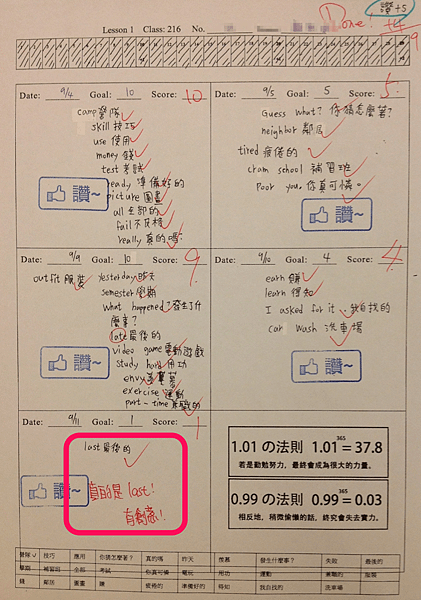 讚+5
Done!
+4
Lesson 1 Class: 216 No.
Date: 9/4 Goal: 10 Score: 10
camp 營隊
skill 技巧
use 使用
money 錢
test 考試
ready 準備好的
picture 圖畫
all 全部的
fail 不及格
really 真的嗎?
讚~
Date: 9/5 Goal: 5 Score: 5
Guess what? 你猜怎麼著?
neighbor 鄰居
tired 疲倦的
cram school 補習班
Poor you. 你真可憐。
讚~
Date: 9/9 Goal: 10 Score: 9
outfit 服裝 yesterday 昨天
semester 學期
what happened? 發生了什
麼事?
late 最後的
video game 電動遊戲
study hard 用功
envy 羨慕著
exercise 運動
part-time 兼職的
讚~
Date: 9/10 Goal: 4 Score: 4
earn 賺
learn 得知
I asked for it. 我自找的
car wash 洗車場
讚~
Date: 9/11 Goal: 1 Score: 1
last 最後的
讚~
真的是 last!
有創意!
1.01 の法則 1.01³⁶⁵ = 37.8
若是勤勉努力,最終會成為很大的力量。
0.99 の法則 0.99³⁶⁵ = 0.03
相反地,稍微偷懶的話,終究會失去實力。
營隊 技巧 應用 你猜怎麼著? 真的嗎 昨天 羨慕 發生什麼事? 失敗 最後的
學期 補習班 全部 考試 你真可憐 電玩 用功 運動 兼職的 服裝
錢 鄰居 圖畫 賺 疲倦的 準備好的 得知 我自找的 洗車場